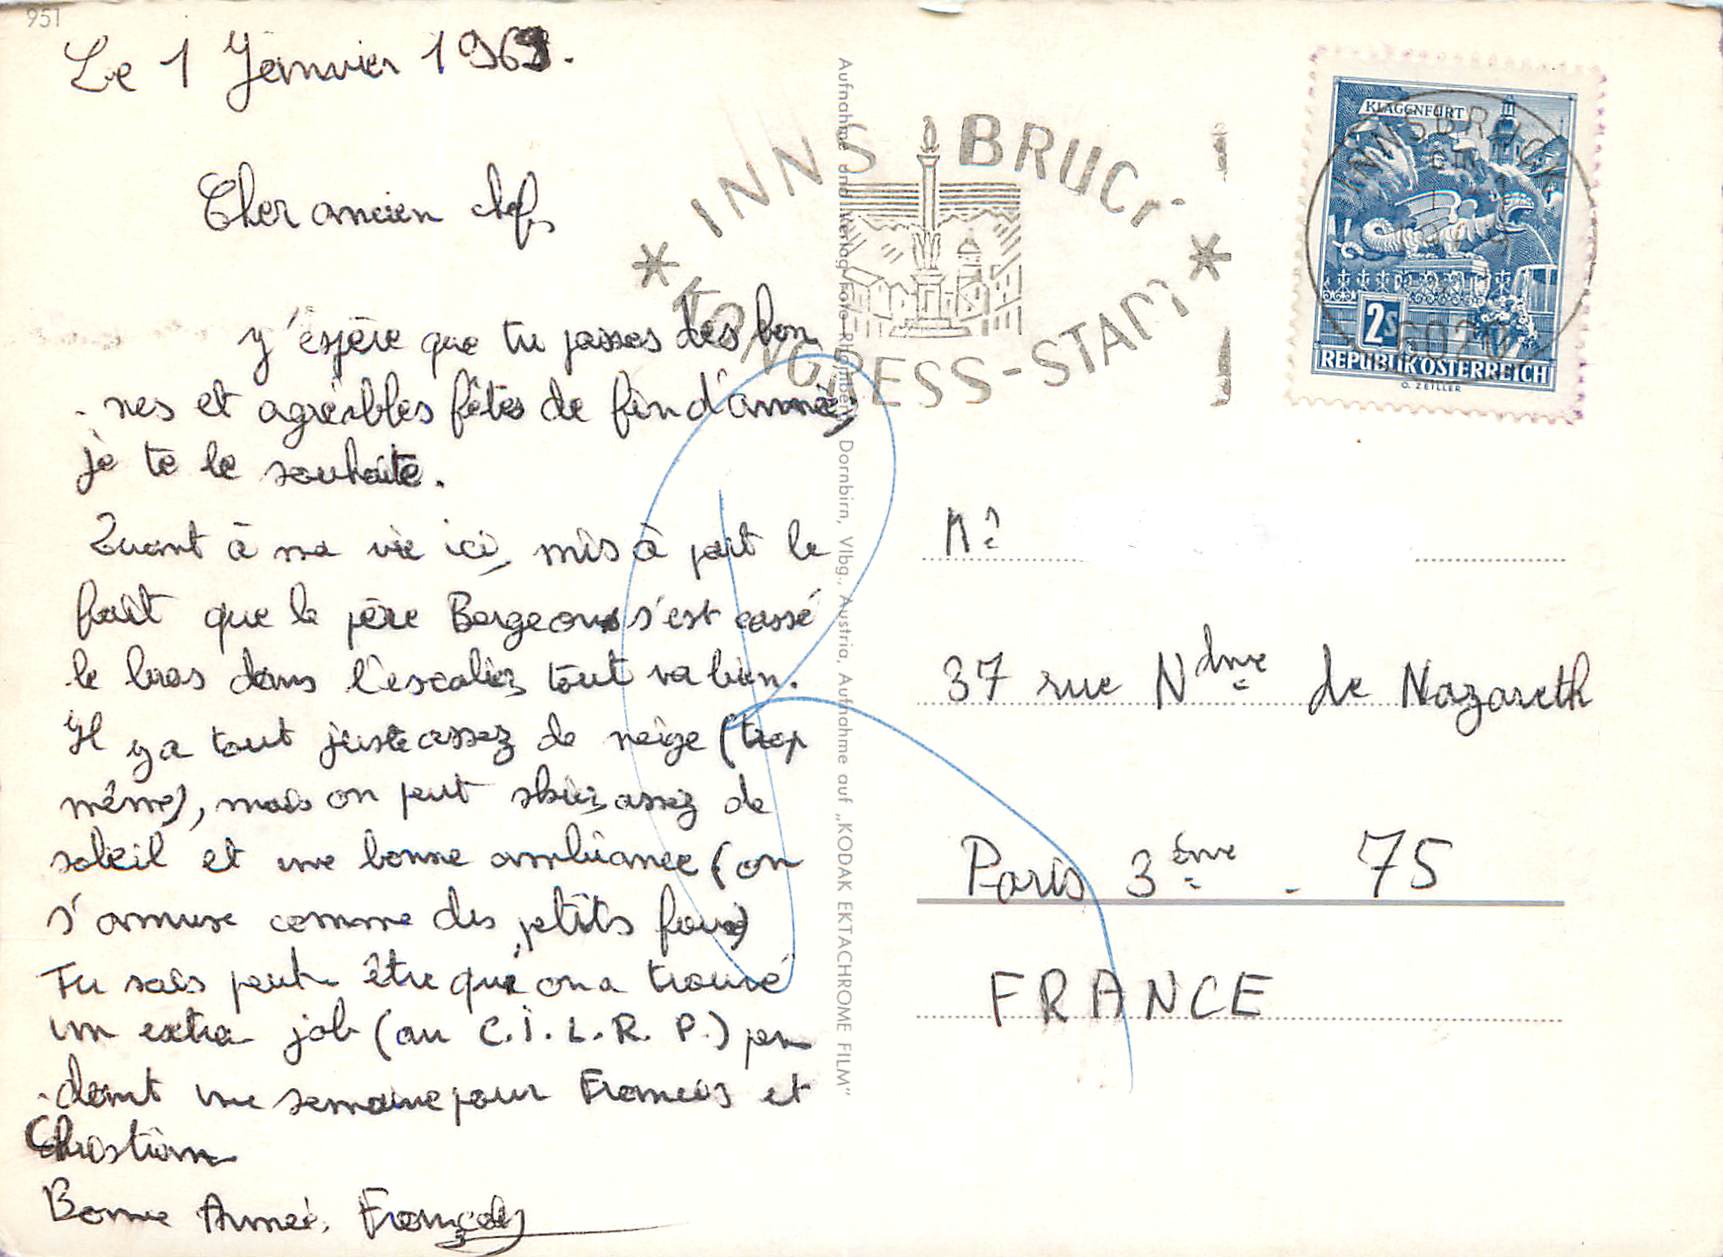 951
Le 1 Janvier 1969.
Cher ancien chef,
J'éspère que tu passes des bon
-nes et agréables fêtes de fin d'année,
je te le souhaite.
Quant à ma vie ici, mis à part le
fait que le père Bergeons s'est cassé
le bras dans l'escalier, tout va bien.
Il y a tout juste assez de neige (trop
même), mais on peut skier, assez de
soleil et une bonne ambiance (on
s'amuse comme des petits fous)
Tu sais peut-être qu'on a trouvé
un extra job (au C.I.L.R.P.) pen
-dant une semaine pour Francis et
Christian
Bonne Année, François
Aufnahme und Verlag Foto Rhomberg, Dornbirn, Vlbg., Austria, Aufnahme auf „KODAK EKTACHROME FILM"
INNSBRUCK
KONGRESS-STADT
KLAGENFURT
INNSBRUCK
6020
2s
REPUBLIK ÖSTERREICH
O. ZEILLER
37 rue Ndme de Nazareth
Paris 3ème - 75
FRANCE